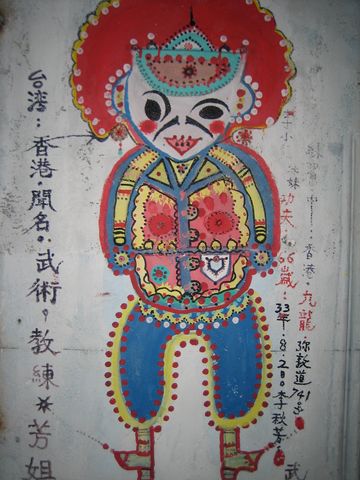 香港
九龍
弥敦道741号
武
妹
功夫
66歲：
33年.8.2日.李秋芳
台湾：香港.聞名.武術，教練*芳姐